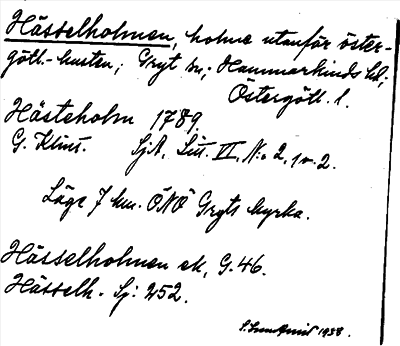 Hässelholmen, holme utanför öster-
götl.-kusten; Gryt sn; Hammarkinds hd;
Östergötl. l.
Hästeholm 1789.
G. Klint. SjA, Litt. VI, N:o 2, 1 v. 2.
Läge 7 km. ÖNÖ Gryts kyrka.
Hässelholmen ek, G. 46.
Hässelh. Sj: 252.
1938.